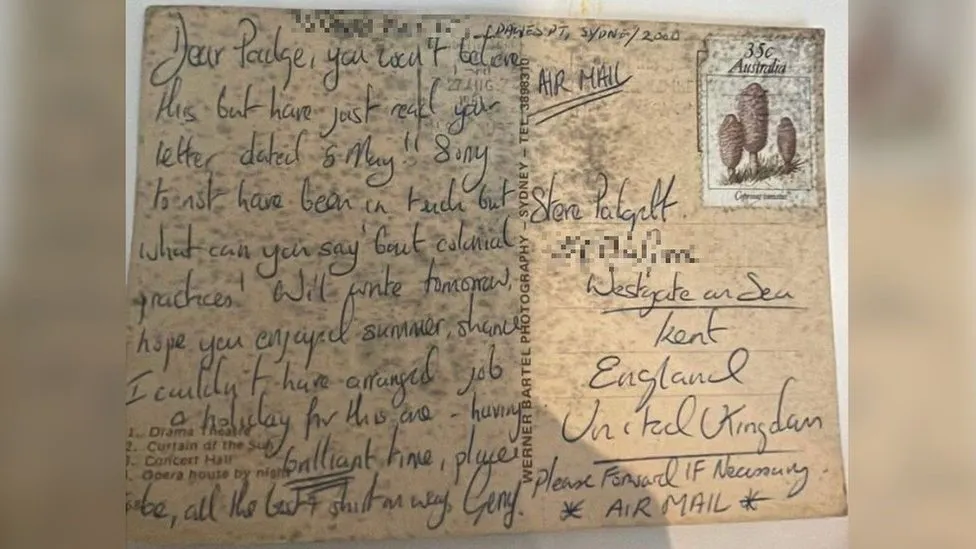 DAWES PT, SYDNEY 2000
Dear Padge, you won't believe
this but have just read your
letter dated 5 May!! Sorry
to not have been in touch but
what can you say 'bout colonial
practices! Will write tomorrow,
hope you enjoyed summer, shame
I couldn't have arranged job
& holiday for this one - having
brilliant time, place
to be, all the best & shirt on way. Gerry.
1. Drama Theatre
2. Curtain of the Sun
3. Concert Hall
4. Opera house by night
WERNER BARTEL PHOTOGRAPHY - SYDNEY - TEL. 3898310
27 AUG
AIR MAIL
35c
Australia
Steve Padgett.
Westgate on Sea
Kent
England
United Kingdom
Please Forward IF Necessary.
* AIR MAIL *